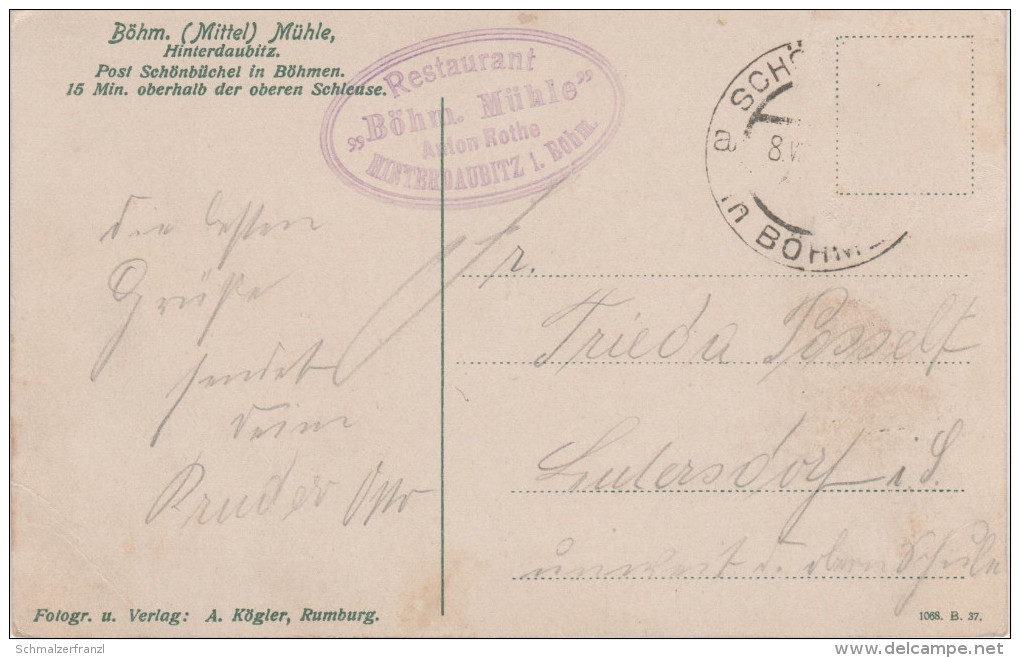 Böhm. (Mittel) Mühle,
Hinterdaubitz.
Post Schönbüchel in Böhmen.
15 Min. oberhalb der oberen Schleuse.
Restaurant
„Böhm. Mühle”
Anton Rothe
HINTERDAUBITZ i. Böhm.
SCHÖ
a
8.V
in BÖHM
die besten
Grüße
sendet
Deine
Bruder Otto
Fr.
Frieda Posselt
Lutersdorf i. S.
unweit d. obern Schule
Fotogr. u. Verlag: A. Kögler, Rumburg.
1068. B. 37.
Schmalzerfranzl
delcampe.net